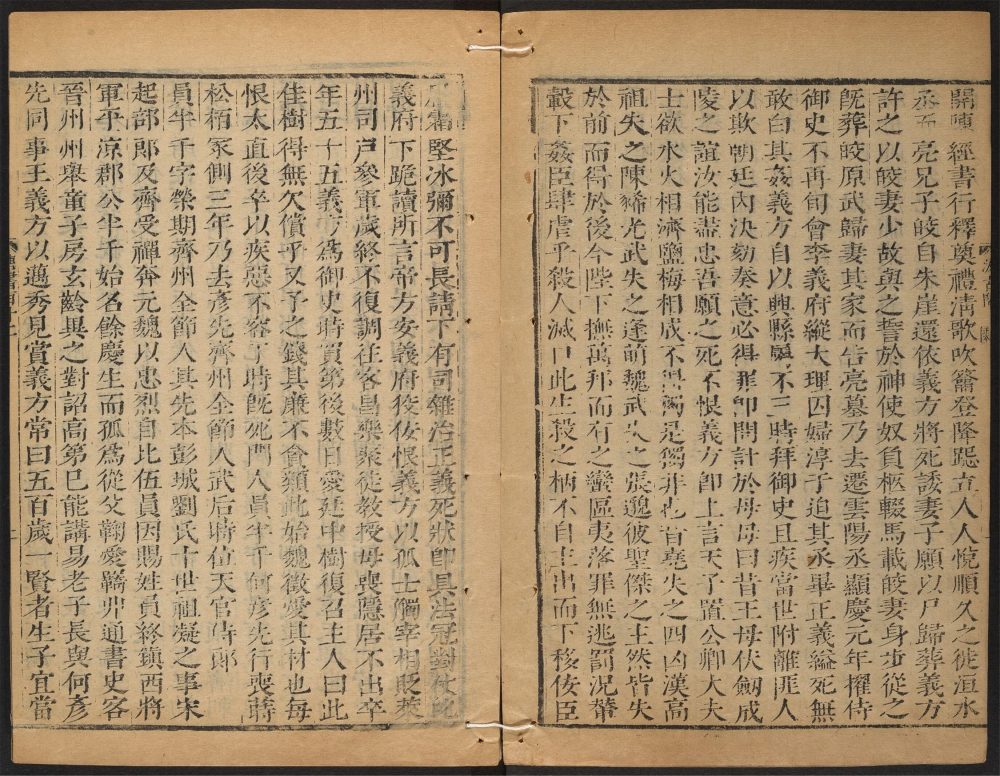 開陳經書行釋奠禮清歌吹籥登降跽立人人悅順久之徙洹水
丞而亮兄子皎自朱崖還依義方將死諉妻子願以尸歸葬義方
許之以皎妻少故與之誓於神使奴負柩輟馬載皎妻身步從之
既葬皎原武歸妻其家而告亮墓乃去遷雲陽丞顯慶元年擢侍
御史不再旬會李義府縱大理囚婦淳于迫其丞畢正義縊死無
敢白其姦義方自以興縣屬不三時拜御史且疾當世附離匪人
以欺朝廷內決劾奏意必得罪即問計於母母曰昔王母伏劒成
陵之誼汝能盡忠吾願之死不恨義方即上言天子置公卿大夫
士欲水火相濟鹽梅相成不得獨是獨非也昔堯失之四凶漢高
祖失之陳豨光武失之逢萌魏武失之張邈彼聖傑之主然皆失
於前而得於後今陛下撫萬邦而有之蠻區夷落罪無逃罰況輦
轂下姦臣肆虐乎殺人滅口此生殺之柄不自主出而下移佞臣
霜堅冰彌不可長請下有司雜治正義死狀即具法冠對仗叱
義府下跪讀所言帝方安義府佞恨義方以孤士觸宰相貶萊
州司戶參軍歲終不復調往客昌樂聚徒教授母喪隱居不出卒
年五十五義方爲御史時買第後數日愛廷中樹復召主人曰此
佳樹得無欠償乎又予之錢其廉不貪類此始魏徵愛其材也每
恨太直後卒以疾惡不容于時既死門人員半千何彥先行喪蒔
松栢冢側三年乃去彥先齊州全節人武后時位天官侍郎
員半千字榮期齊州全節人其先本彭城劉氏十世祖凝之事宋
起部郞及齊受禪奔元魏以忠烈自比伍員因賜姓員終鎭西將
軍平涼郡公半千始名餘慶生而孤爲從父鞠愛羈丱通書史客
晉州州舉童子房玄齡異之對詔高第已能講易老子長與何彥
先同事王義方以邁秀見賞義方常曰五百歲一賢者生子宜當